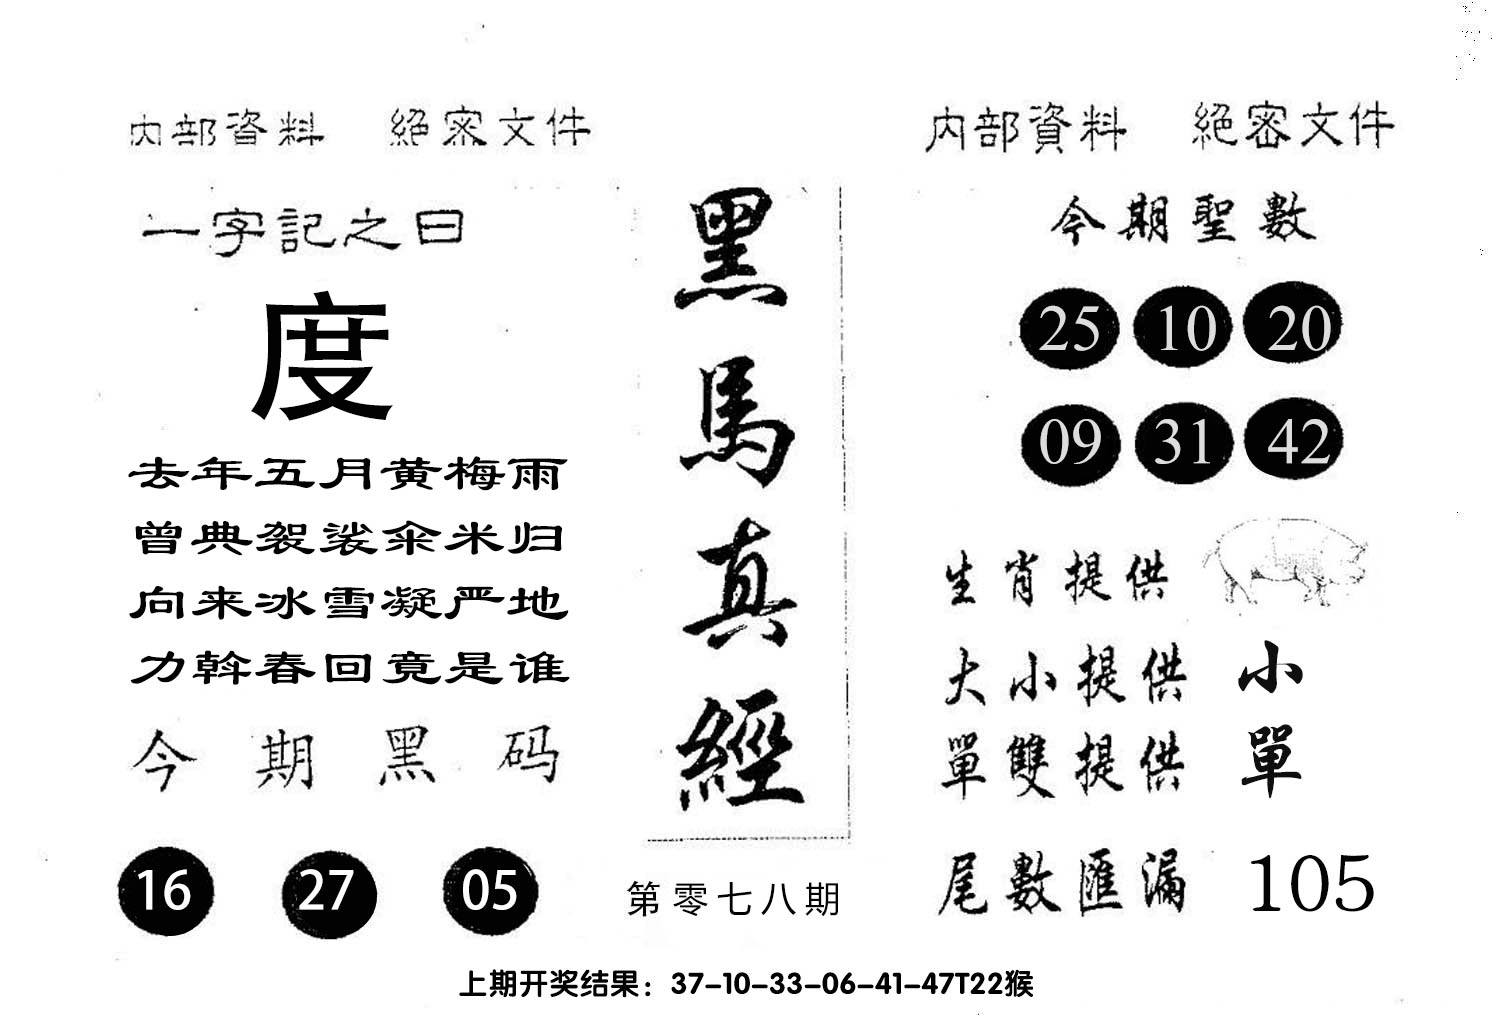 内部資料 絕密文件
一字記之曰
度
去年五月黄梅雨
曾典袈裟籴米归
向来冰雪凝严地
力斡春回竟是谁
今期黑码
16 27 05
黑馬真經
第零七八期
内部資料 絕密文件
今期聖數
25 10 20
09 31 42
生肖提供
大小提供 小
單雙提供 單
尾數匯漏 105
上期开奖结果：37-10-33-06-41-47T22猴